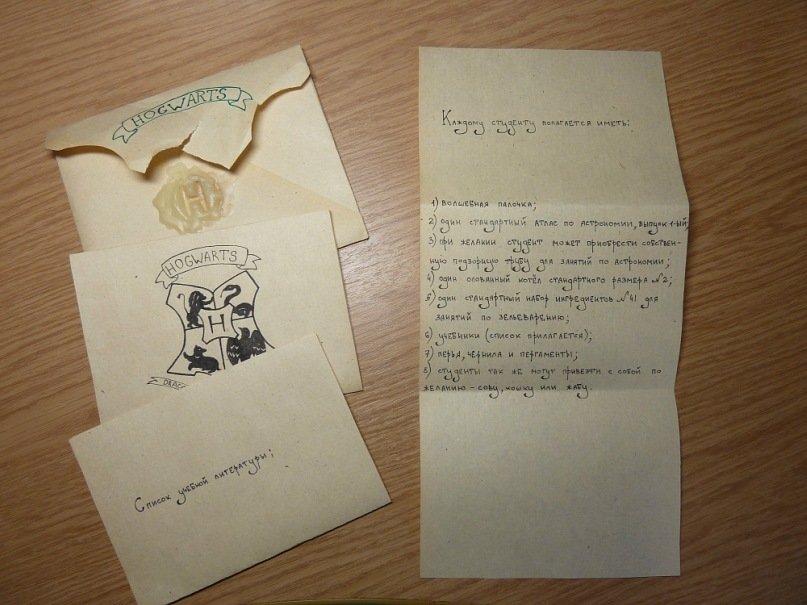 HOGWARTS
H
HOGWARTS
H
DRAC
Список учебной литературы;
Каждому студенту полагается иметь:
1) волшебная палочка;
2) один стандартный атлас по астрономии, выпуск 1-ый;
3) при желании студент может приобрести собствен-
ную подзорную трубу для занятий по астрономии;
4) один оловянный котёл стандартного размера №2;
5) один стандартный набор ингредиентов №41 для
занятий по зельеварению;
6) учебники (список прилагается);
7) перья, чернила и пергаменты;
8) студенты так же могут привезти с собой по
желанию - сову, кошку или жабу.